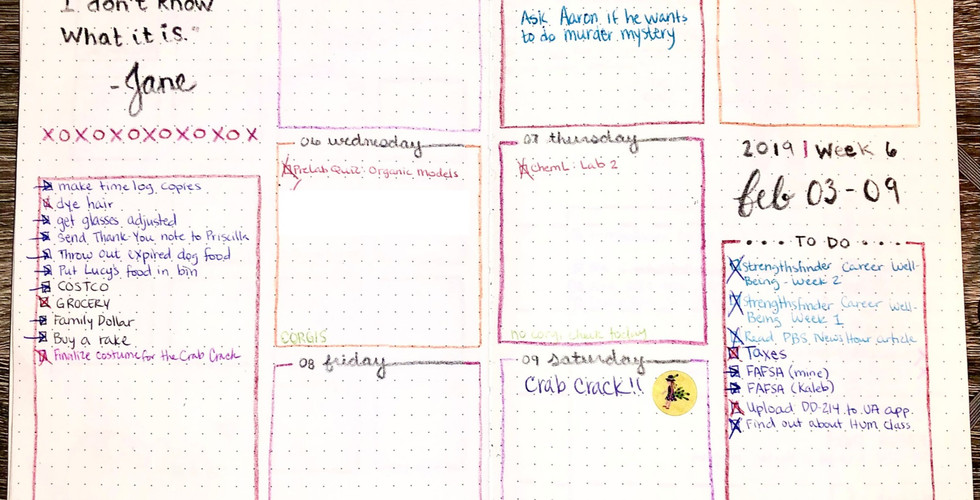 I don't know
What it is."
-Jane
XOXOXOXOXOXOX
make time log copies
dye hair
get glasses adjusted
Send Thank You note to Priscilla
Throw out expired dog food
Put Lucy's food in bin
COSTCO
GROCERY
Family Dollar
Buy a rake
Finalize costume for the Crab Crack
06 wednesday
PreLab Quiz: Organic Models
CORGIS
08 friday
Ask Aaron if he wants
to do murder mystery
07 thursday
ChemL: Lab 2
no today
09 saturday
Crab Crack!!
2019 | Week 6
feb 03-09
TO DO
Strengthsfinder Career Well-
Being Week 2
Strengthsfinder Career Well-
Being Week 1
Read PBS News Hour article
Taxes
FAFSA (mine)
FAFSA (Kaleb)
Upload DD-214 to UA app.
Find out about Hum class